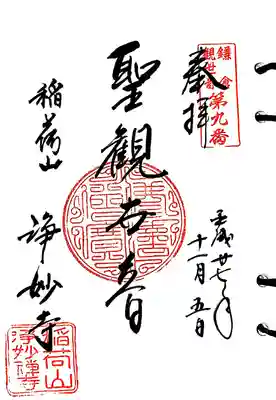 奉拝
鎌倉
観世音
第九番
平成廿七年
十一月五日
聖観世音
稲荷山
浄妙寺
稲荷山
浄妙禅寺